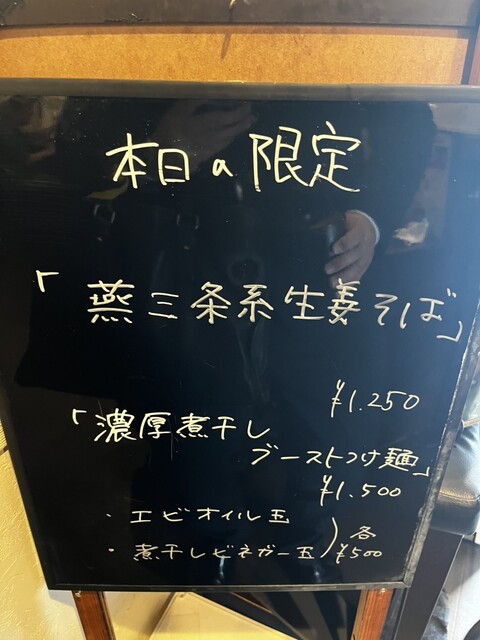 本日の限定
「燕三条系生姜そば」
¥1.250
「濃厚煮干し
ブーストつけ麺」
¥1.500
・エビオイル玉
・煮干しビネガー玉
各
¥500